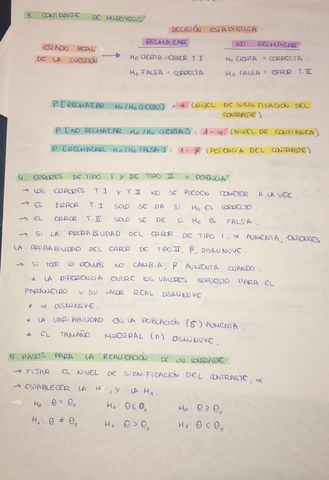 3. CONTRASTE DE HIPÓTESIS
DECISIÓN ESTADÍSTICA
ESTADO REAL DE LA CUESTIÓN
RECHAZAR
NO RECHAZAR
H₀ CIERTA = ERROR T.I
H₀ CIERTA = CORRECTA.
H₀ FALSA = CORRECTA
H₀ FALSA = ERROR T.II
P [RECHAZAR H₀/H₀ CIERTO] = α (NIVEL DE SIGNIFICACIÓN DEL CONTRASTE)
P [NO RECHAZAR H₀/H₀ CIERTA] = 1 - α (NIVEL DE CONFIANZA)
P [RECHAZAR H₀/H₀ FALSA] = 1 - β (POTENCIA DEL CONTRASTE)
4. ERRORES DE TIPO I Y DE TIPO II Y POTENCIA
→ LOS ERRORES T.I Y T.II NO SE PUEDEN COMETER A LA VEZ.
→ EL ERROR T.I SOLO SE DA SI H₀ ES CORRECTO
→ EL ERROR T.II SOLO SE DE SI H₀ ES FALSA.
→ SI LA PROBABILIDAD DEL ERROR DE TIPO I, α AUMENTA, ENTONCES
LA PROBABILIDAD DEL ERROR DE TIPO II, β, DISMINUYE.
→ SI TODO LO DEMÁS NO CAMBIA, β AUMENTA CUANDO:
* LA DIFERENCIA ENTRE LOS VALORES SUPUESTO PARA EL
PARÁMETRO Y SU VALOR REAL DISMINUYE.
* α DISMINUYE.
* LA VARIABILIDAD EN LA POBLACIÓN (σ) AUMENTA.
* EL TAMAÑO MUESTRAL (n) DISMINUYE.
5. PASOS PARA LA REALIZACIÓN DE UN CONTRASTE
→ FIJAR EL NIVEL DE SIGNIFICACIÓN DEL CONTRASTE, α
→ ESTABLECER LA H₀ Y LA H₁.
H₀: θ = θ₀ H₀: θ ≤ θ₀ H₀: θ ≥ θ₀
H₁: θ ≠ θ₀ H₁: θ > θ₀ H₁: θ < θ₀